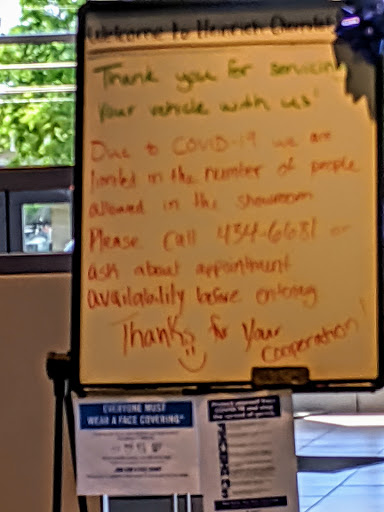 Welcome to Henrich Chevrolet
Thank you for servicing
your vehicle with us!
Due to COVID-19 we are
limited in the number of people
allowed in the showroom
Please Call 434-6681 or
ask about appointment
availability before entering
Thanks for your
cooperation!
EVERYONE MUST
WEAR A FACE COVERING*